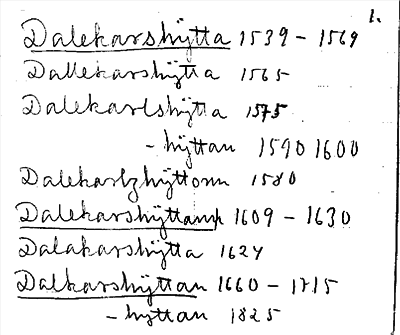 1.
Dalekarshÿtta 1539 - 1569
Dallekarshÿtta 1565
Dalekarlshÿtta 1575
- hÿttan 1590 1600
Dalekarlzhÿttonn 1580
Dalekarshÿttann 1609 - 1630
Dalakarshÿtta 1624
Dalkarshÿttan 1660 - 1715
- hyttan 1825